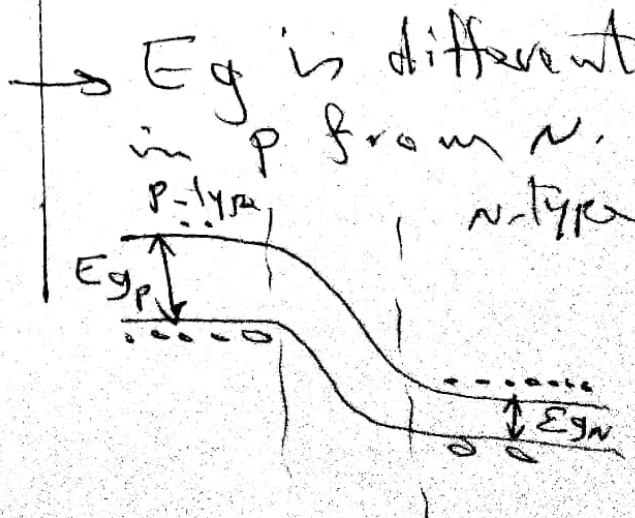 → Eg is different
in p from N.
p-type
N-type
Egp
EgN